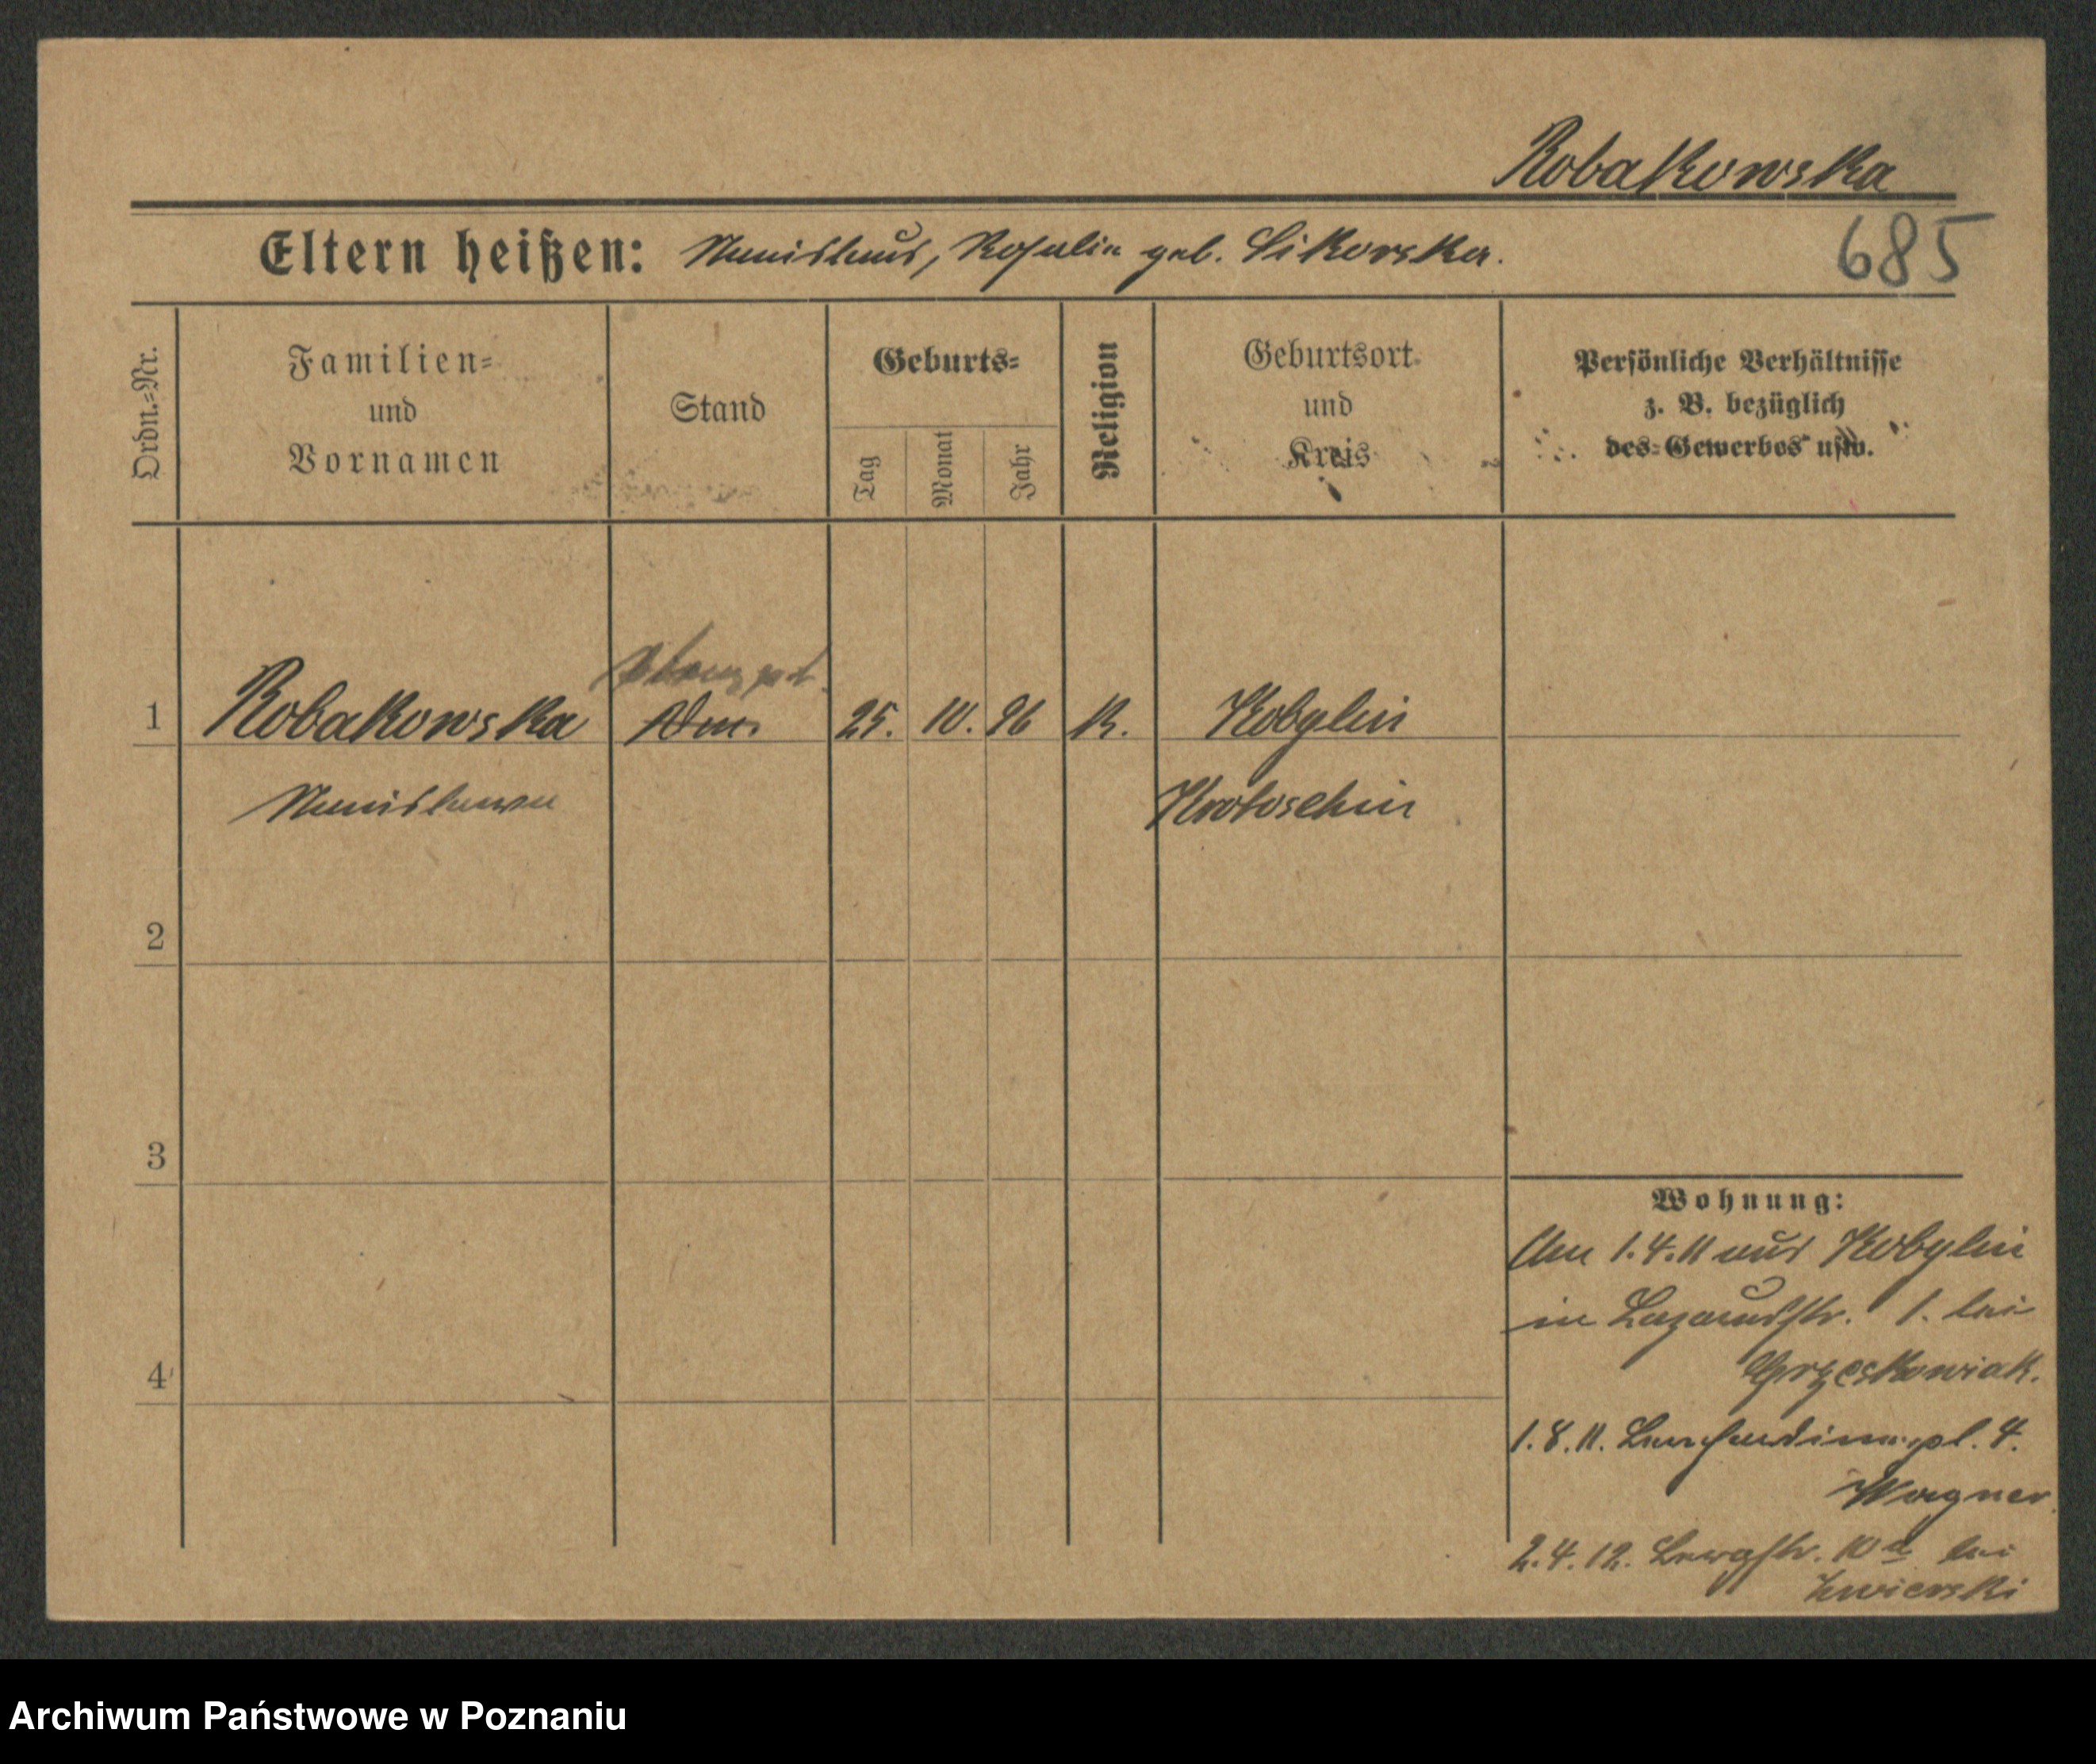 Robakowska
685
Eltern heißen: Stanislaus, Rosalia geb. Sikorska.
Ordn.=Nr.
Familien=
und
Vornamen
Stand
Geburts=
Tag
Monat
Jahr
Religion
Geburtsort
und
Kreis
Persönliche Verhältnisse
z. B. bezüglich
des Gewerbes usw.
1 Robakowska 25. 10. 96 K. Kobylin
Stanislawa Krotoschin
2
3
4
Wohnung:
An 1.4.11 aus Kobylin
in Lazarusstr. 1. bei
Grzeskowiak.
1.8.11. 4.
Wagner
2.4.12. Bergstr. 10a bei
Zwierski
Archiwum Państwowe w Poznaniu